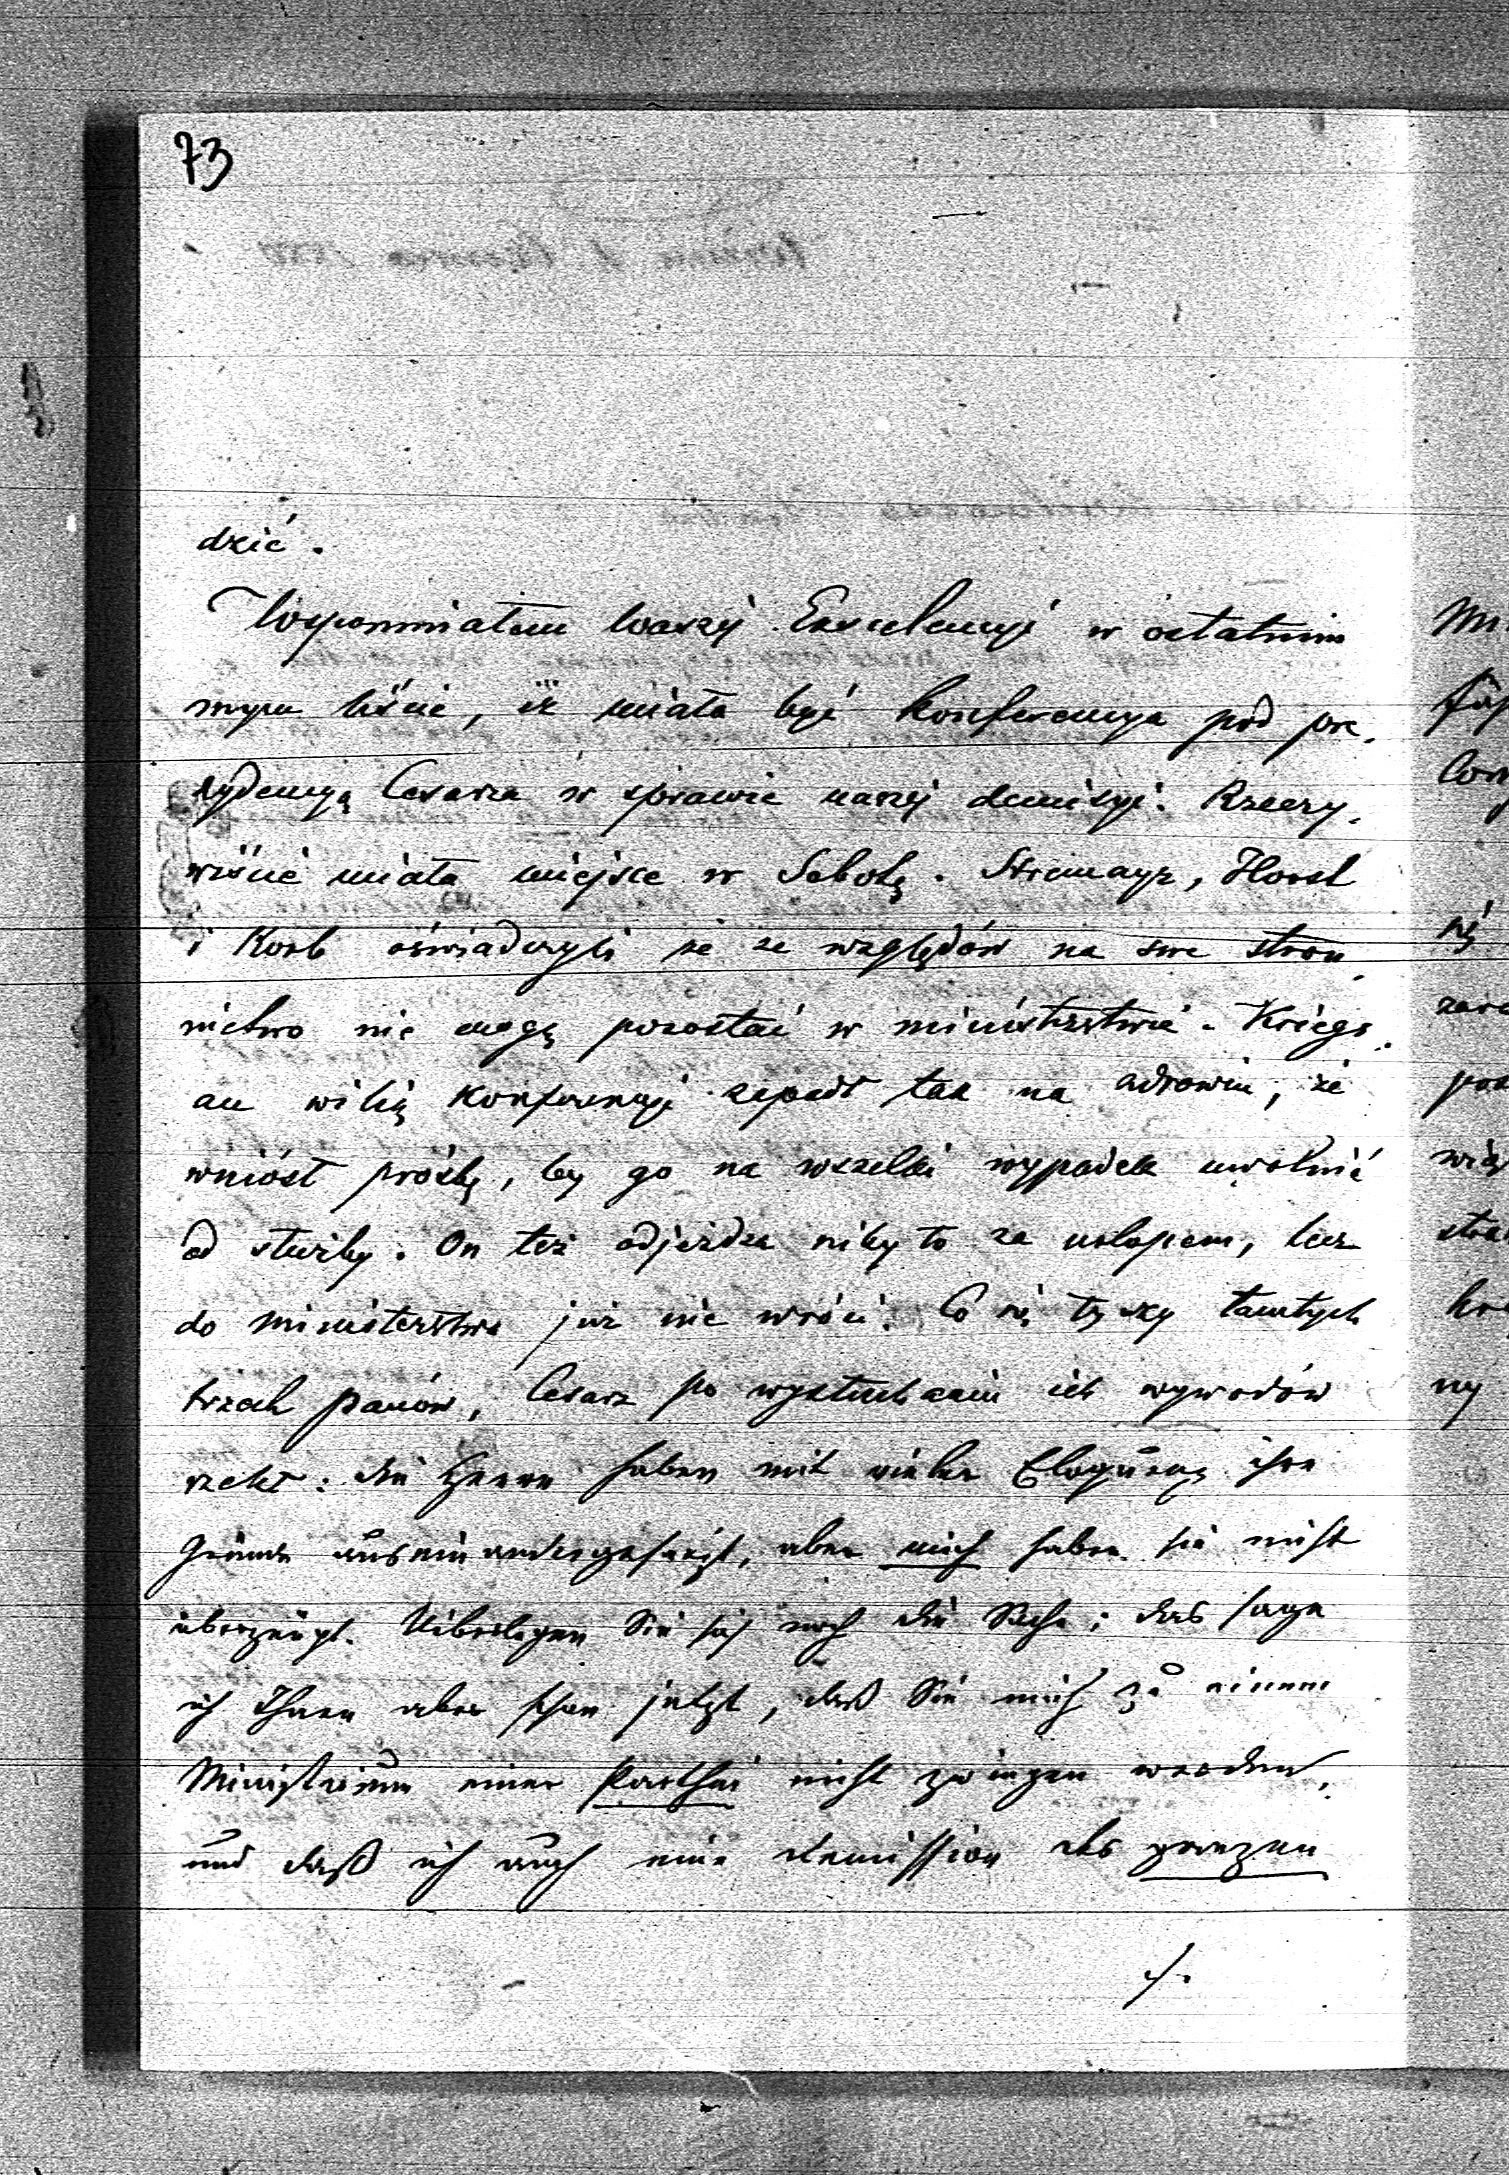 73
dzić.
Wspomniałem Waszéj Excelencyi w ostatnim
mym liście, iż miała być konferencya pod pre-
zydencyą Cesarza w sprawie naszéj demisyi. Rzeczy-
wiście miała miejsce w Sobotę. Stremayr, Horst
i Korb oświadczyli że ze względów na swe stron-
nictwo nie mogą pozostać w ministerstwie. Kriegs-
au wilią konferencyi zapadł tak na zdrowiu, że
wniósł prośbę, by go na wszelki wypadek uwolnić
od służby. On też odjeżdża niby to za urlopem, lecz
do ministerstwa już nie wróci. Co się tyczy tamtych
trzech panów, Cesarz po wysłuchaniu ich wywodów
rzekł: die Herren haben mit vieler Eloquenz ihre
Gründe auseinandergesetzt, aber mich haben sie nicht
überzeugt. Uiberlegen Sie sich noch die Sache; das sage
ich Ihnen aber schon jetzt, daß Sie mich zu einem
Ministerium einer Parthei nicht zwingen werden,
und daß ich auch eine Demission des ganzen
./.